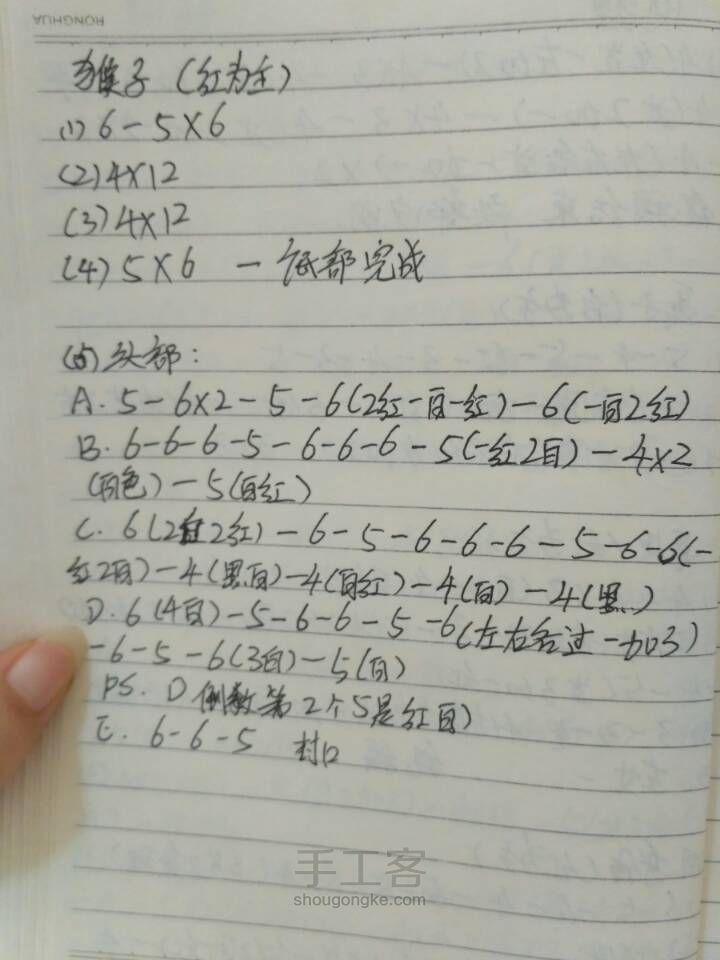 HONGHUA
猴子（红为主）
(1) 6-5×6
(2) 4×12
(3) 4×12
(4) 5×6 — 底部完成
(5) 头部：
A. 5-6×2-5-6(2红一白一红)-6(一白2红)
B. 6-6-6-5-6-6-6-5(一红2白)-4×2
(白色)-5(白红)
C. 6(2白2红)-6-5-6-6-6-5-6-6(一
红2白)-4(黑白)-4(白红)-4(白)-4(黑..)
D. 6(4白)-5-6-6-5-6(左右各过一加3)
-6-5-6(3白)-5(白)
PS. D倒数第2个5是红白)
E. 6-6-5 封口
手工客
shougongke.com